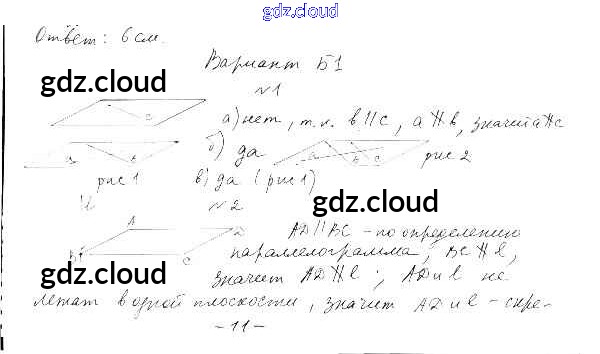 gdz.cloud
Ответ: 6 см.
Вариант Б1
gdz.cloud
№1
c
а) нет, т.к. b || c, a ∦ b, значит a ∦ c
gdz.cloud
б) да
a b c
рис 1
рис 2
в) да (рис 1)
gdz.cloud
№2
A D
B C
AD || BC - по определению
параллелограмма, BC ∦ l,
gdz.cloud
значит AD ∦ l; AD и l не
gdz.cloud
лежат в одной плоскости, значит AD и l - скре-
- 11 -